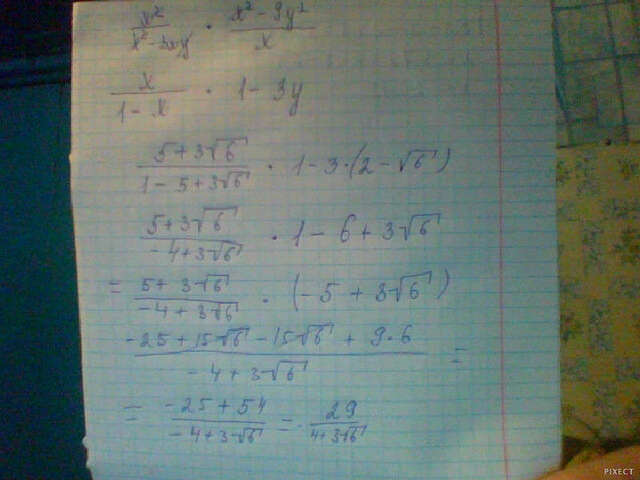 x²/(x²-3xy) · (x²-9y²)/x
x/(1-x) · 1-3y
(5+3√6)/(1-5+3√6) · 1-3·(2-√6)
(5+3√6)/(-4+3√6) · 1-6+3√6
= (5+3√6)/(-4+3√6) · (-5+3√6)
(-25+15√6-15√6+9·6)/(-4+3√6) =
= (-25+54)/(-4+3√6) = - 29/(4+3√6)
PIXECT